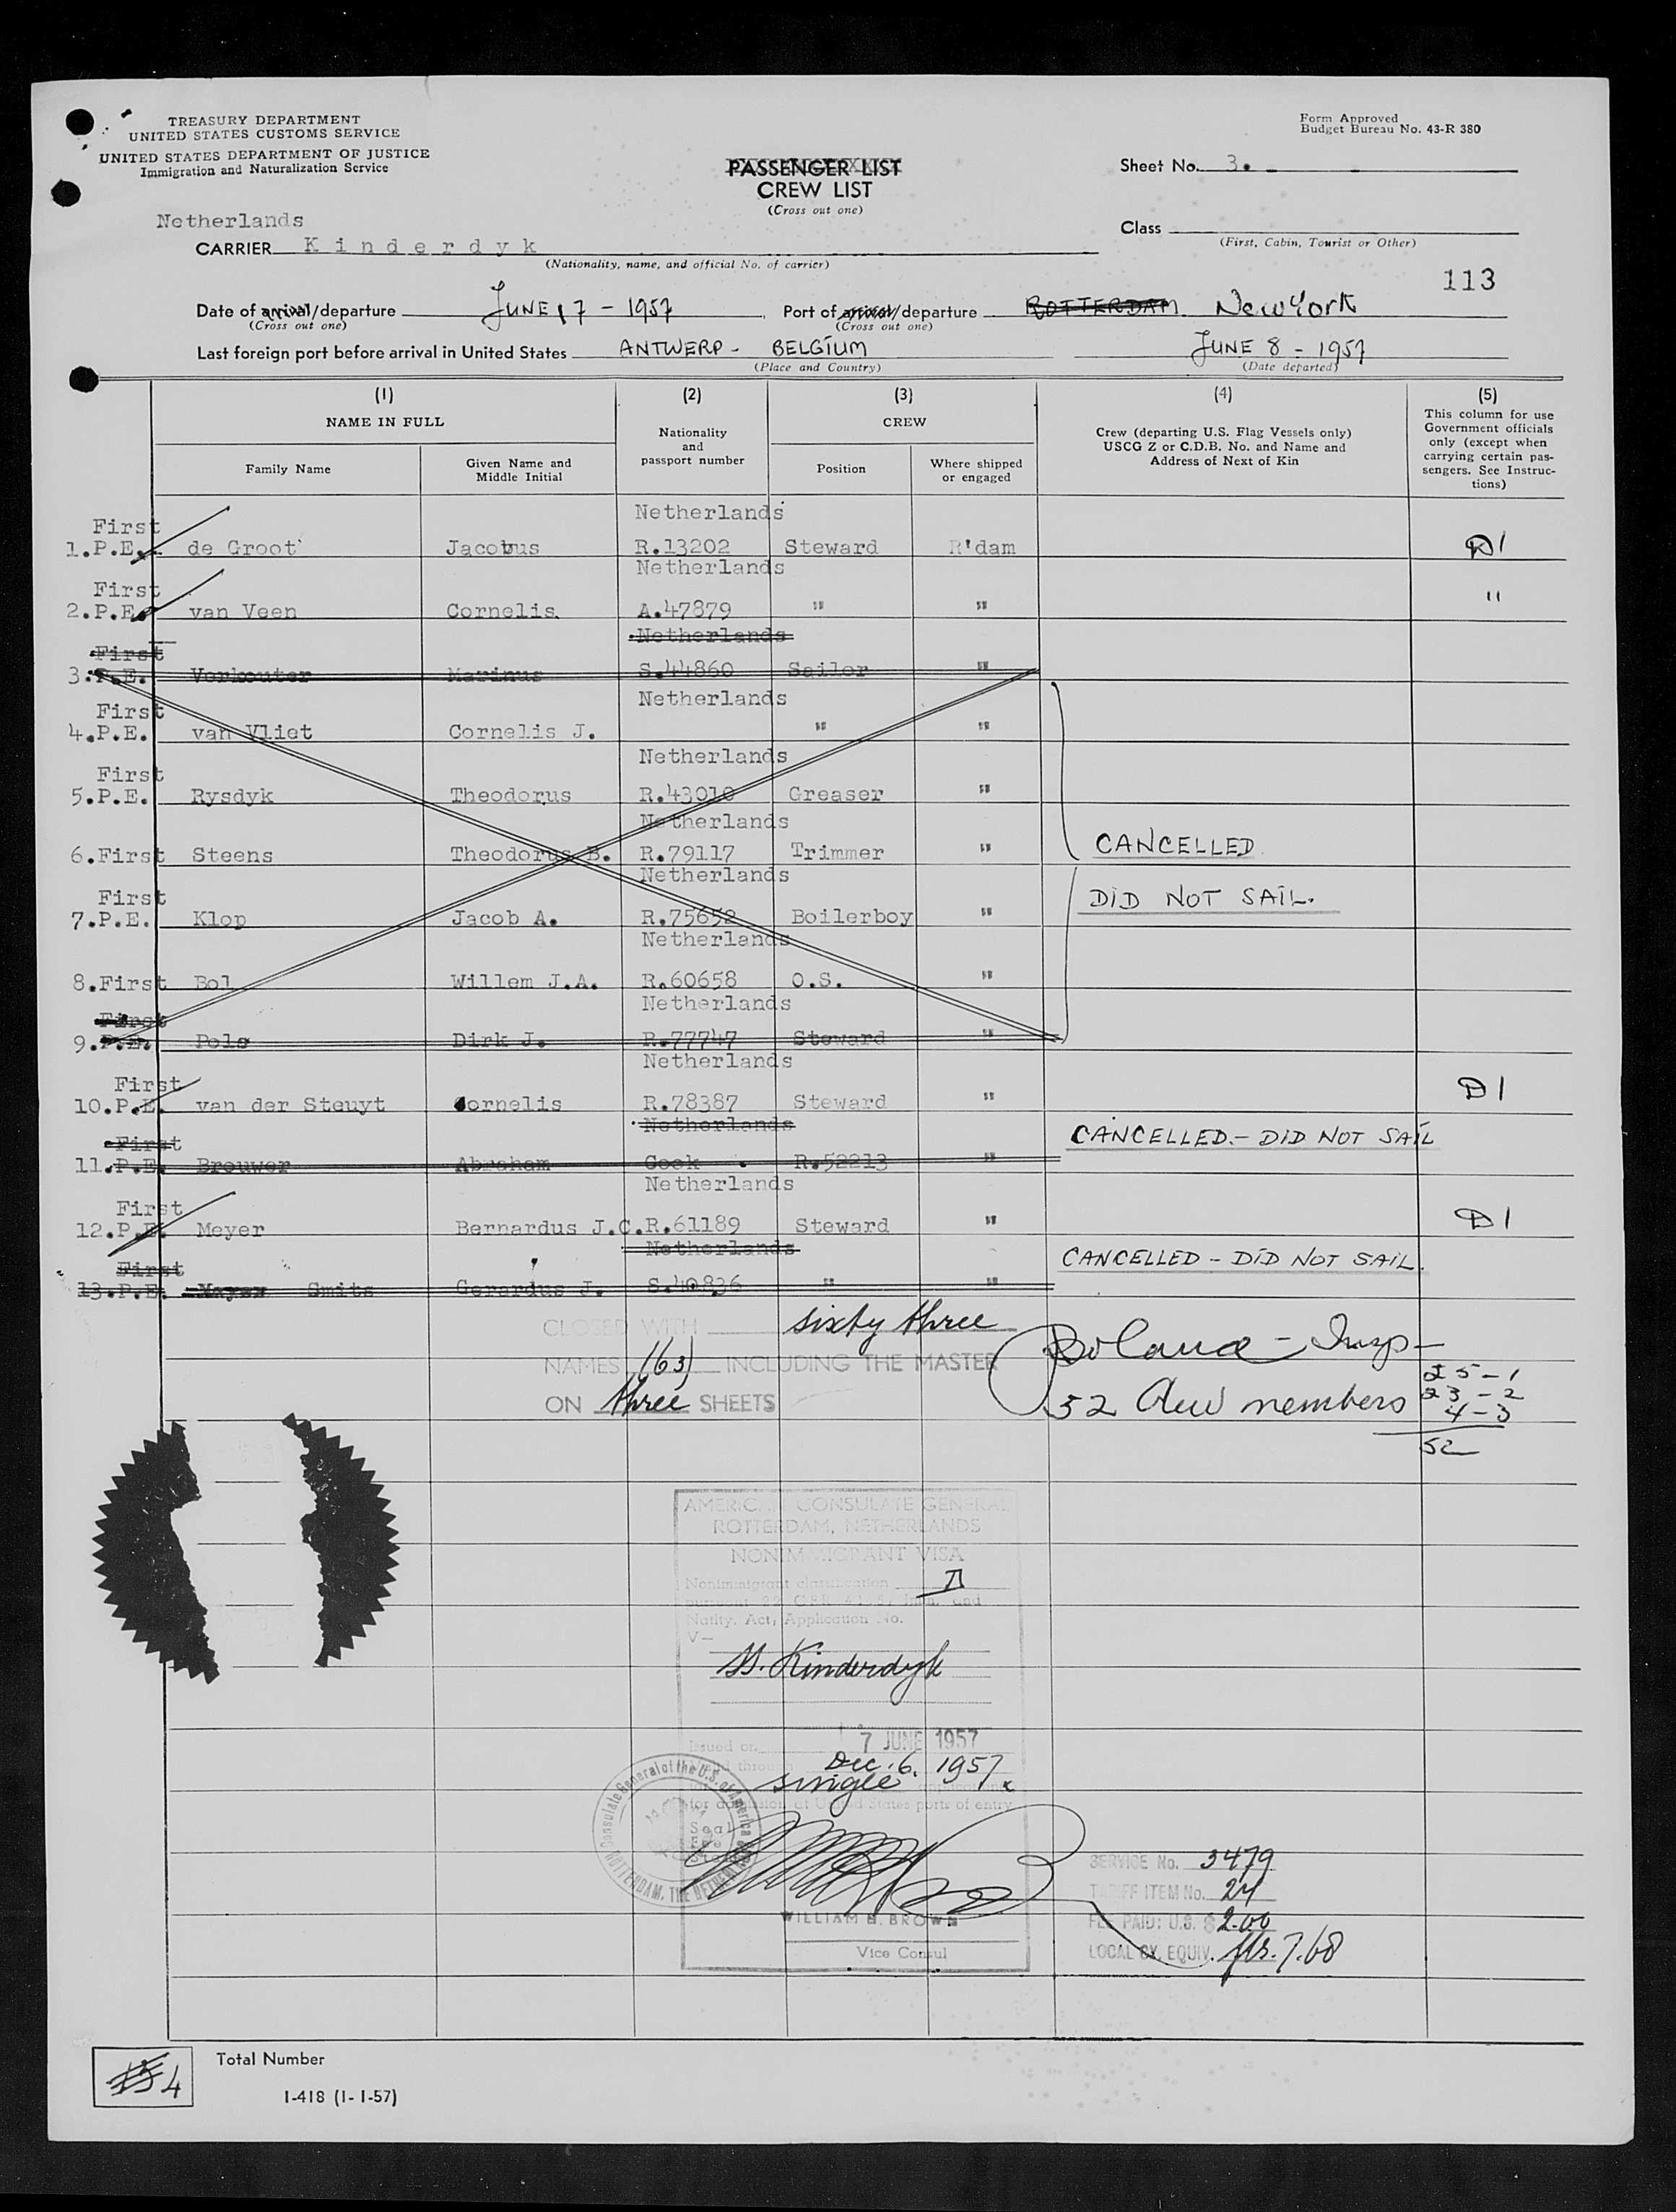 TREASURY DEPARTMENT
UNITED STATES CUSTOMS SERVICE
UNITED STATES DEPARTMENT OF JUSTICE
Immigration and Naturalization Service
Form Approved
Budget Bureau No. 43-R 380
PASSENGER LIST
CREW LIST
(Cross out one)
Sheet No. 3.
Netherlands
CARRIER Kinderdyk
(Nationality, name, and official No. of carrier)
Class
(First, Cabin, Tourist or Other)
113
Date of arrival/departure JUNE 17 - 1957 Port of arrival/departure ROTTERDAM New York
(Cross out one) (Cross out one)
Last foreign port before arrival in United States ANTWERP - BELGIUM JUNE 8 - 1957
(Place and Country) (Date departed)
(1) (2) (3) (4) (5)
NAME IN FULL
Nationality and passport number
CREW
Crew (departing U.S. Flag Vessels only) USCG Z or C.D.B. No. and Name and Address of Next of Kin
This column for use Government officials only (except when carrying certain passengers. See Instructions)
Family Name Given Name and Middle Initial Position Where shipped or engaged
First Netherlands
1.P.E. de Groot Jacobus R.13202 Steward R'dam D1
First Netherlands
2.P.E. van Veen Cornelis. A.47879 " " "
First Netherlands
3.P.E. Verkouter Marinus S.44860 Sailor "
First Netherlands
4.P.E. van Vliet Cornelis J. " "
First Netherlands
5.P.E. Rysdyk Theodorus R.43010 Greaser "
Netherlands
6.First Steens Theodorus B. R.79117 Trimmer " CANCELLED
First Netherlands
7.P.E. Klop Jacob A. R.75652 Boilerboy " DID NOT SAIL.
Netherlands
8.First Bol Willem J.A. R.60658 O.S. "
First Netherlands
9.P.E. Pols Dirk J. R.77747 Steward "
First Netherlands
10.P.E. van der Steuyt Cornelis R.78387 Steward " D1
First Netherlands CANCELLED.- DID NOT SAIL
11.P.E. Brouwer Abraham Cook R.52213 "
First Netherlands
12.P.E. Meyer Bernardus J.C. R.61189 Steward " D1
First Netherlands CANCELLED - DID NOT SAIL.
13.P.E. Smits Gerardus J. S.40836 " "
CLOSED WITH sixty three
NAMES (63) INCLUDING THE MASTER
ON three SHEETS
Insp
52 members
25-1
23-2
4-3
52
AMERICAN CONSULATE GENERAL
ROTTERDAM, NETHERLANDS
NONIMMIGRANT VISA
Nonimmigrant classification D
Natlty. Act, Application No.
V-
SS. Kinderdyk
Issued on 7 JUNE 1957
Dec. 6. 1957
single
for admission at United States ports of entry
Consulate General of the U.S. of America
ROTTERDAM, THE NETHERLANDS
Seal
Fee
WILLIAM B. BROWN
Vice Consul
SERVICE No. 3479
TARIFF ITEM No. 24
FEE PAID: U.S. $ 2.00
LOCAL CY. EQUIV. fls. 7.68
4
Total Number
I-418 (1-1-57)